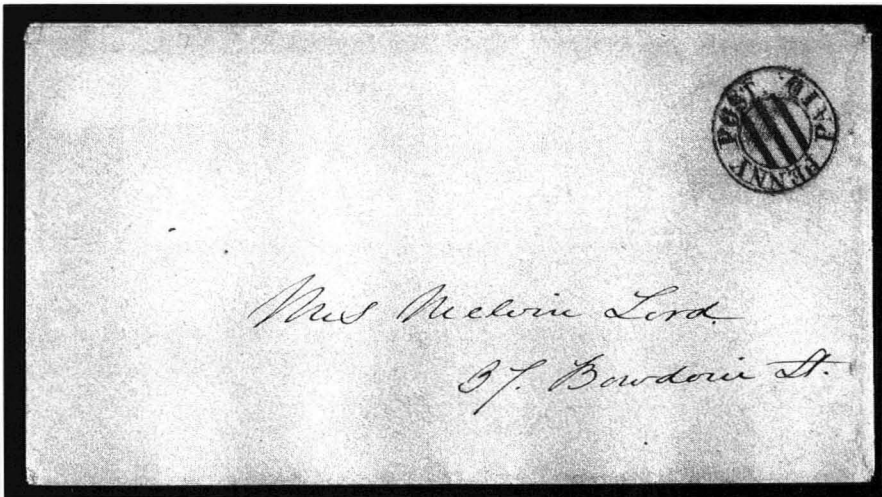 PENNY POST PAID
Mrs Melvin Lord.
37. Bowdoin St.